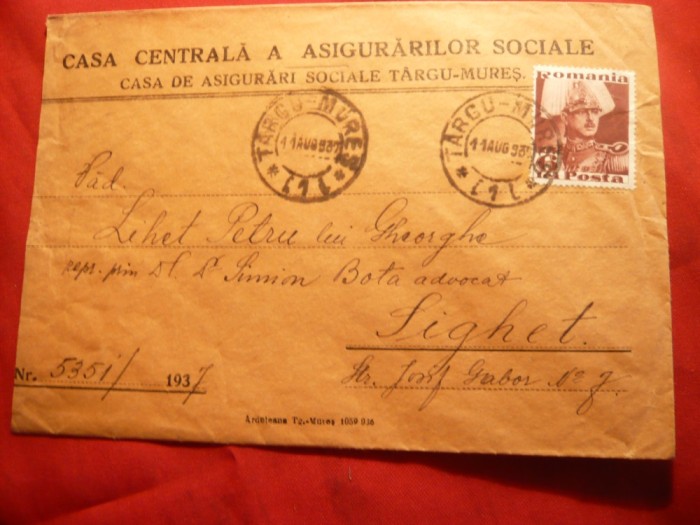 CASA CENTRALĂ A ASIGURĂRILOR SOCIALE
CASA DE ASIGURĂRI SOCIALE TÂRGU-MUREȘ.
Romania
6 L
Posta
TÂRGU-MUREȘ
11 AUG 937
TÂRGU-MUREȘ
11 AUG 93
Lihet Petru lui Gheorghe
repr. prin Dl. Dr Simion Bota advocat
Sighet.
Str. Josif Gabor No
Nr. 5351/ 1937
Ardeleana Tg.-Mureș 1059 936